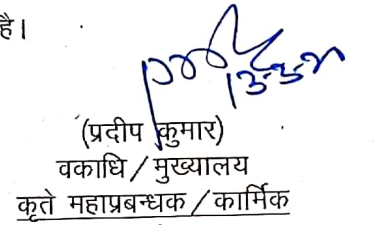 है।
(प्रदीप कुमार)
वकाधि / मुख्यालय
कृते महाप्रबन्धक / कार्मिक